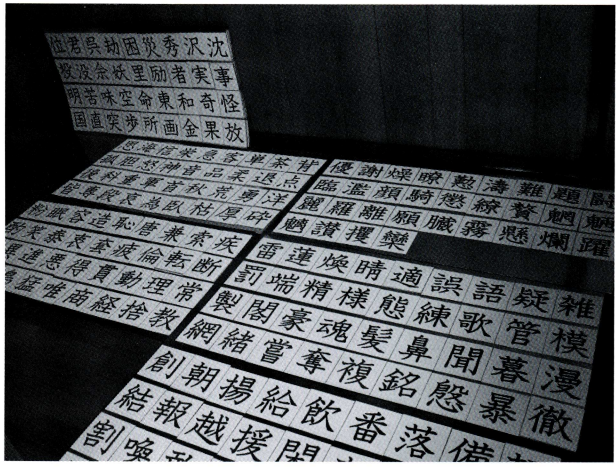 泣君呉劫困災秀沢沈
投没余妖里励者実事
明苦味空命東和奇怪
国直突歩所画金果放
怒海信栄急客単茶背
飄胆怒神音品柔退点
後科重単首秋荒勇洋
皆専段哀為臥枯厚砕
粉眠容造恥唐兼索疾
敵笑泰衰釜疲倫転断
進悪得貫動理常
猛唯商経捨教
優謝燥瞭懃濤難題
臨濫顔騎懲繚贅魍
羅離願臓霧懸爛躍
魑讃攫欒
雷蓮煥晴適誤語疑雑
罰端精様態練歌管模
製閣豪魂髪鼻聞暮漫
網緒嘗奪複銘慇暴徹
創朝揚給飲番落備
結報越援開
割喚